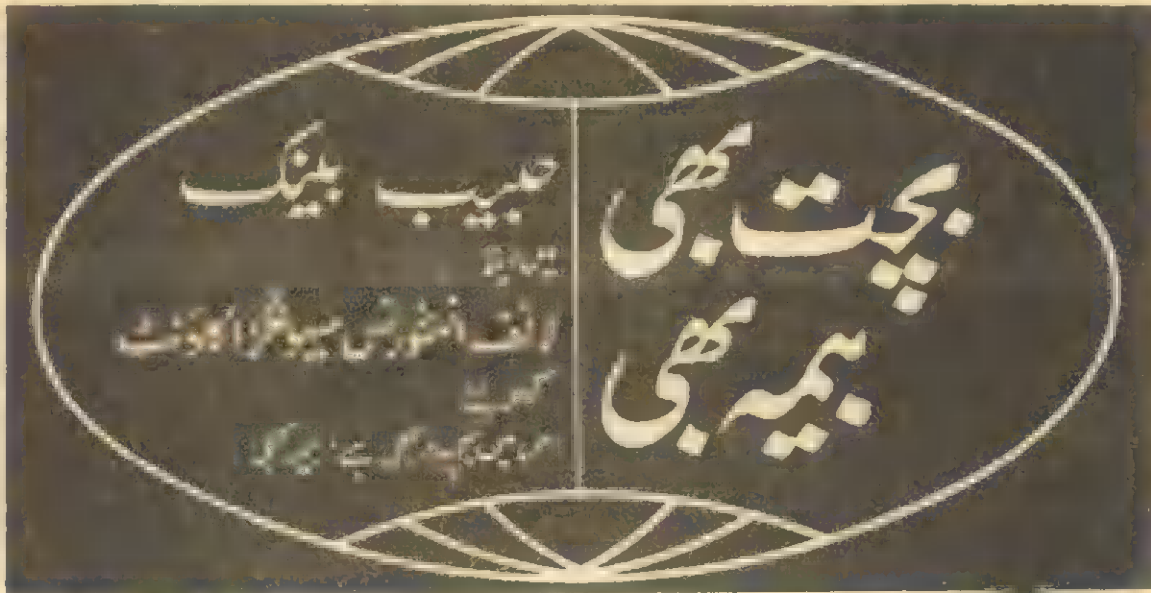 بچت بھی
بیمہ بھی
حبیب بینک
میں اپنا
لائف انشورنس سیونگز اکاؤنٹ
کھولئے